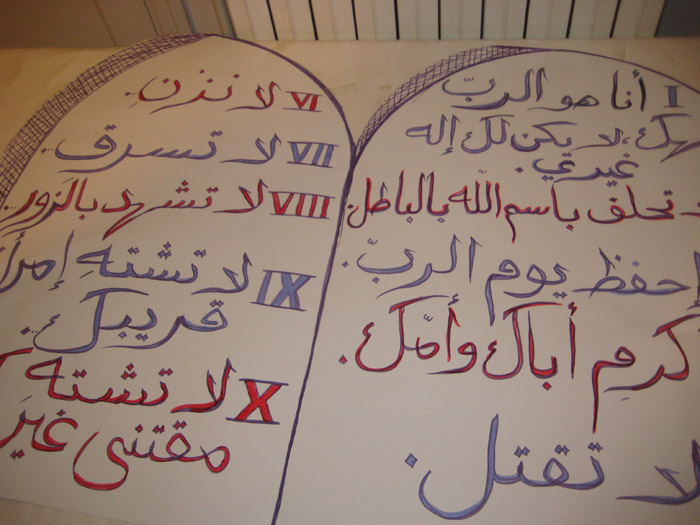 I أنا هو الربّ
إلهك، لا يكن لك إله
غيري.
تحلف باسم اللّه بالباطل.
إحفظ يوم الربّ.
كرِم أباك وأمّك.
لا تقتل.
VI لا تزنِ.
VII لا تسرق.
VIII لا تشهد بالزور.
IX لا تشتهِ إمرأة
قريبك.
X لا تشتهِ
مقتنى غيرك